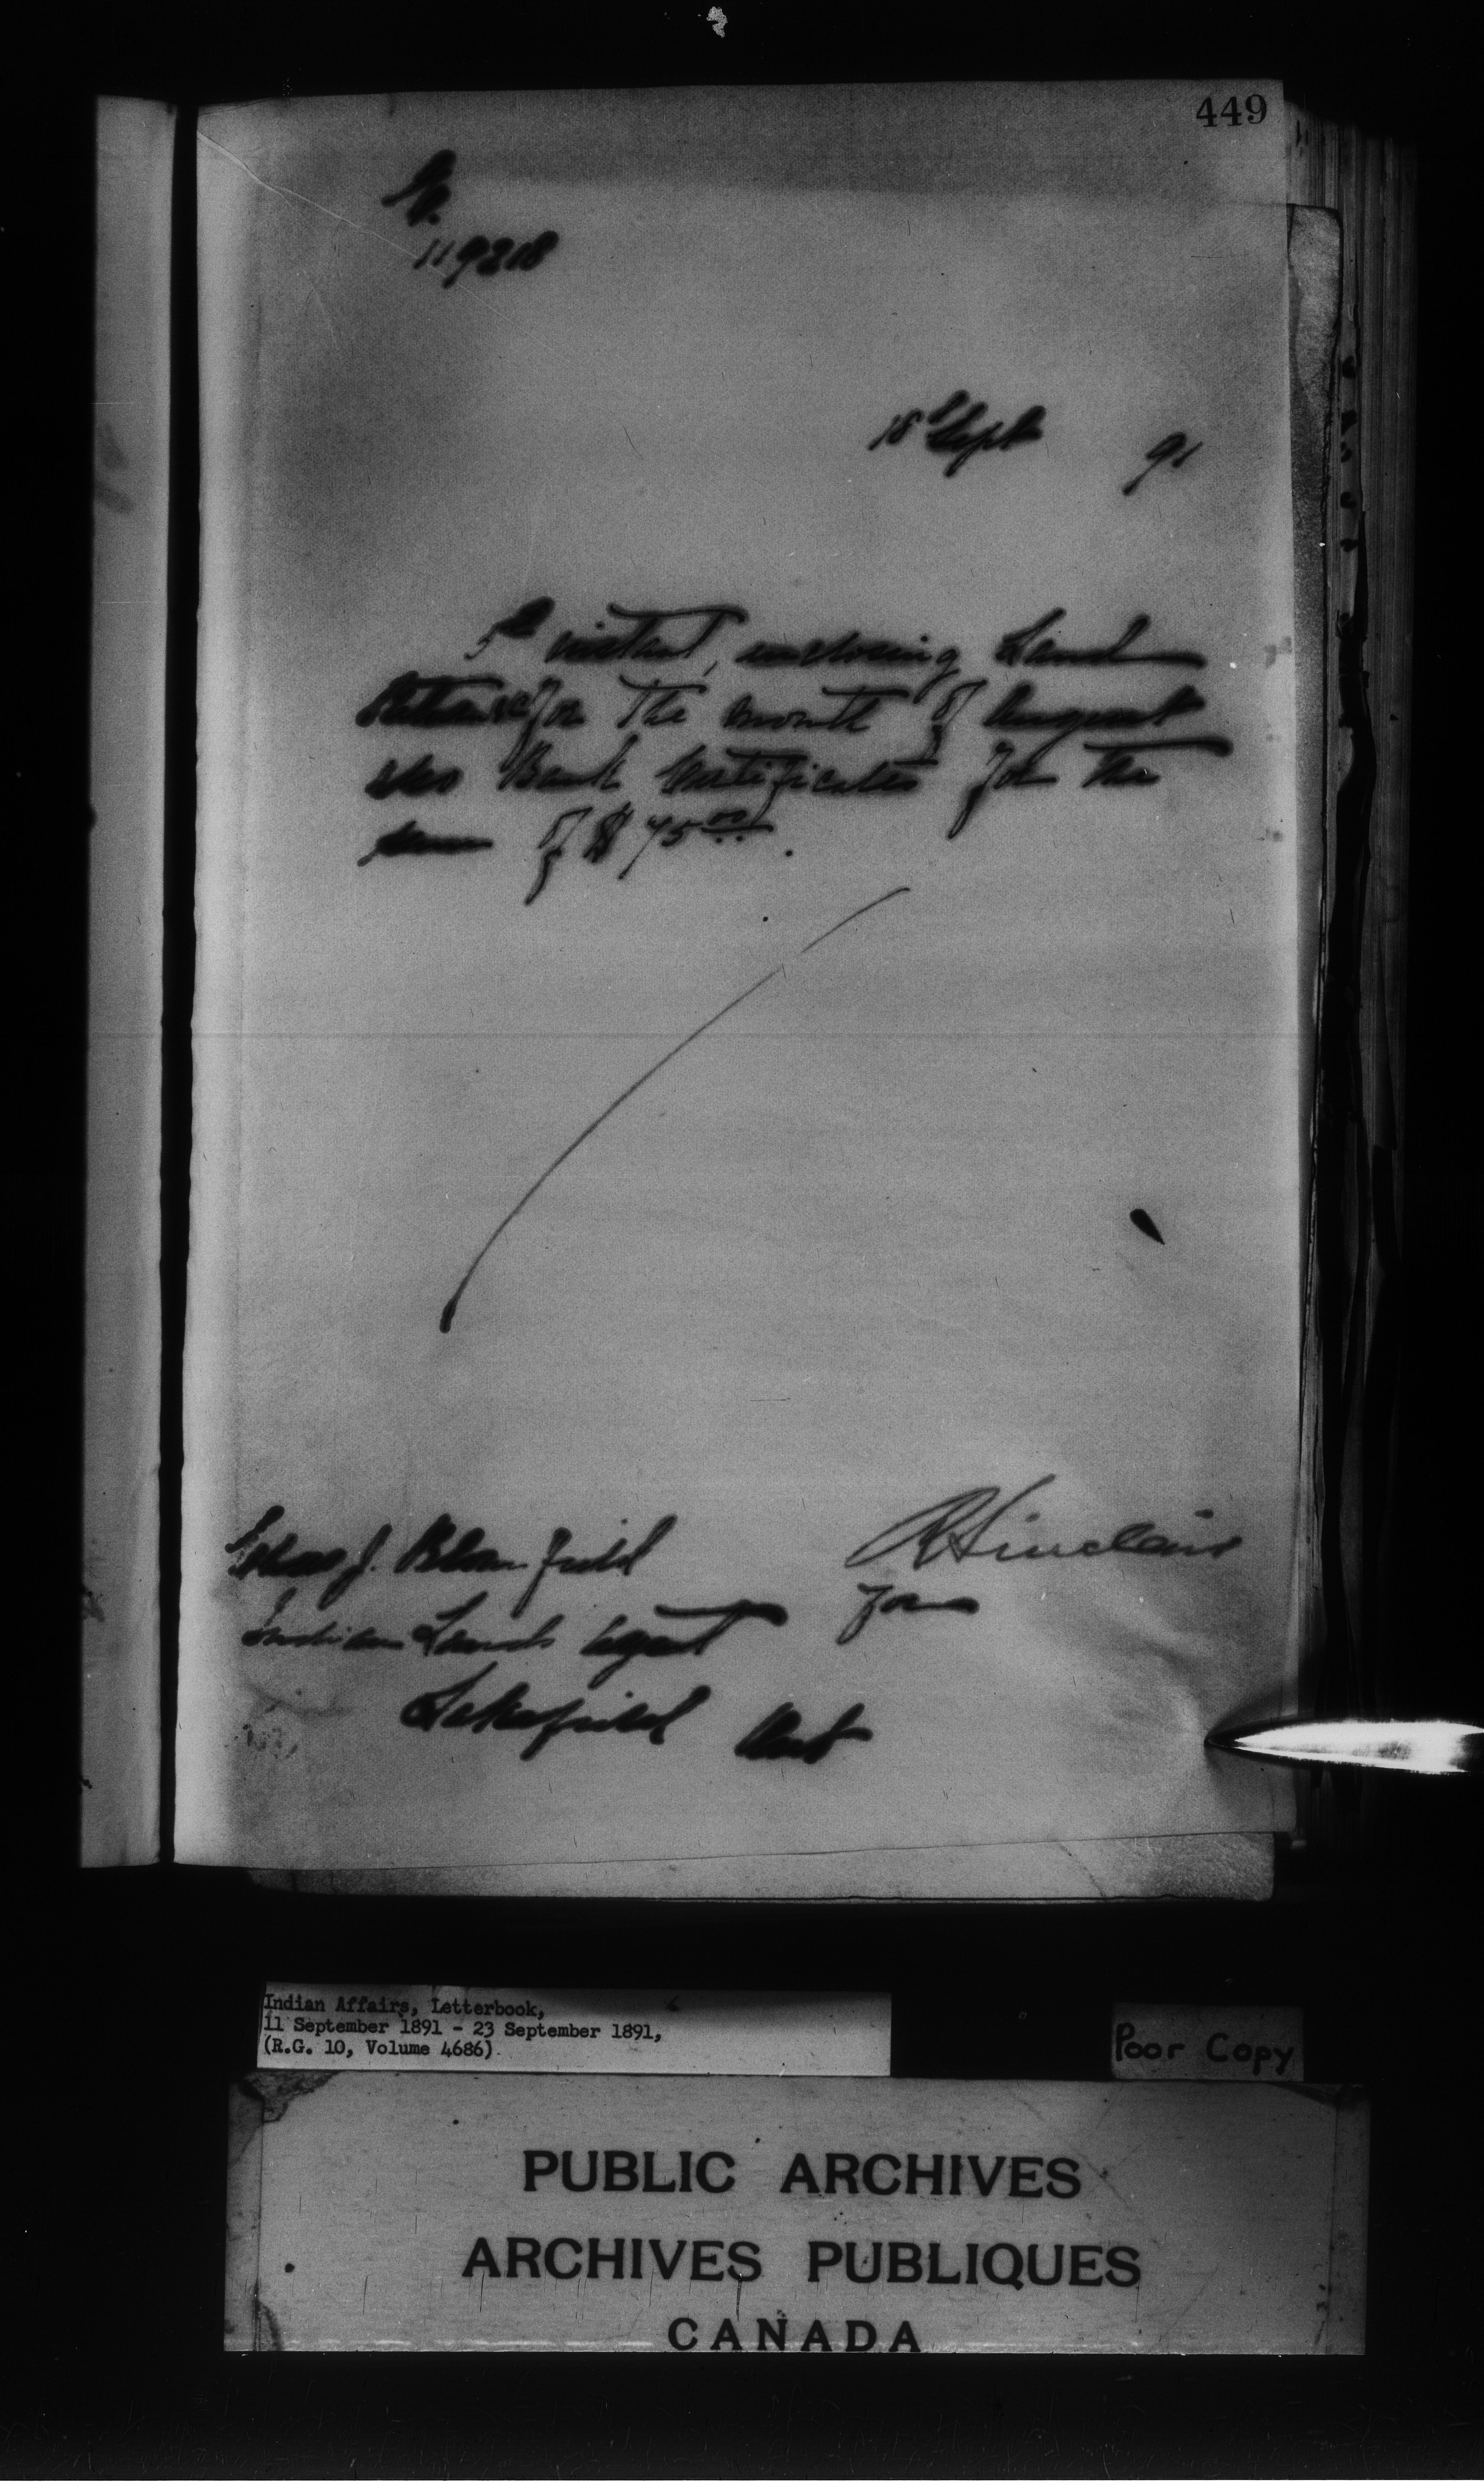 449
119218
18 Sept 91
5th instant, enclosing Land
Returns for the month of August
Bank Certificates for the
sum of $75.00.
J. Bloomfield
RSinclair
Indian Lands Agent
for
Lakefield Ont
Indian Affairs, Letterbook,
11 September 1891 - 23 September 1891,
(R.G. 10, Volume 4686)
Poor Copy
PUBLIC ARCHIVES
ARCHIVES PUBLIQUES
CANADA